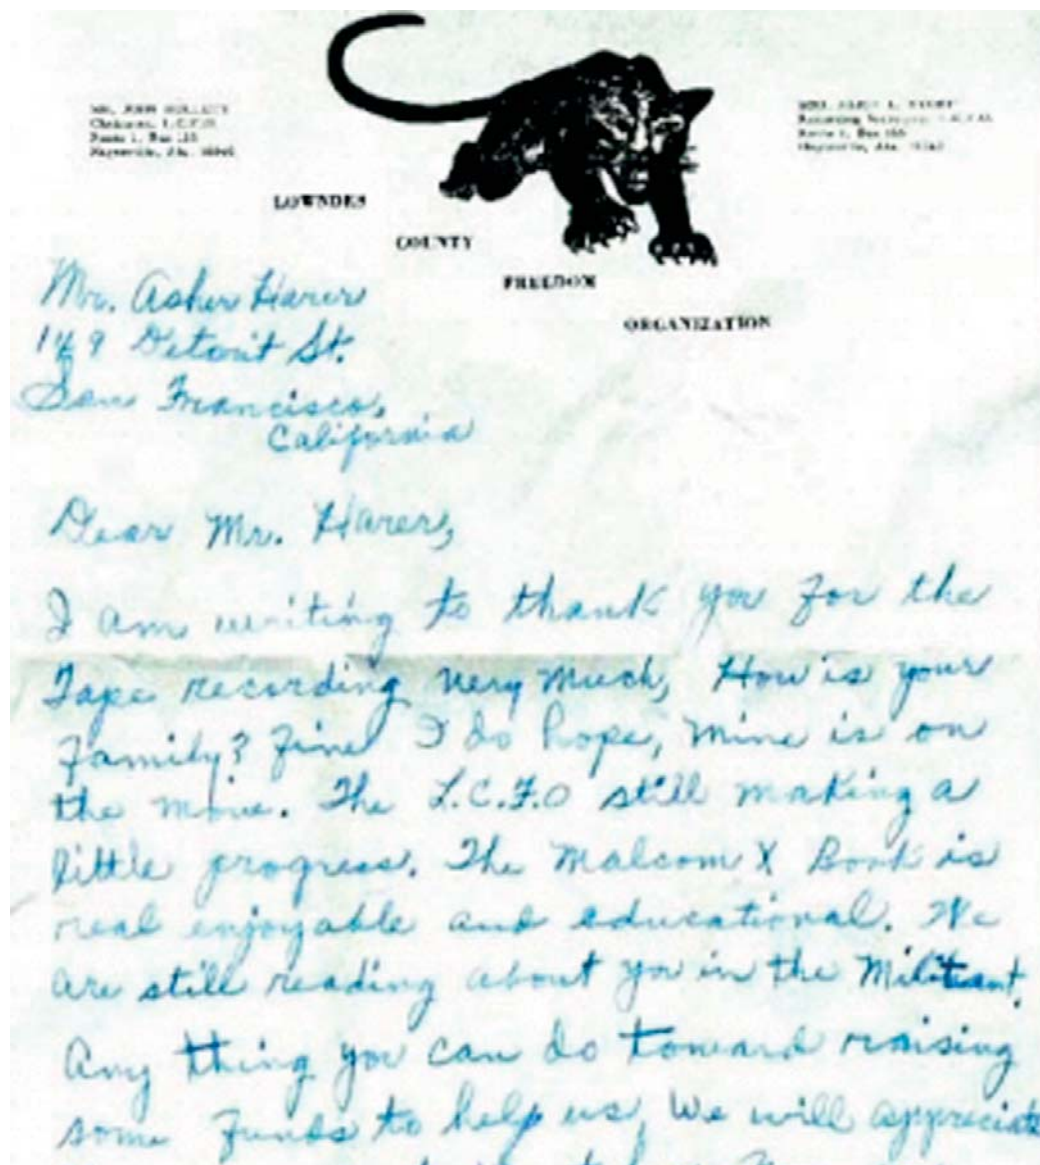 MR. JOHN HULLETT
Chairman, L.C.F.O.
Haynesville, Ala.
Recording Secretary
LOWNDES
COUNTY
FREEDOM
ORGANIZATION
Mr. Asher Harer
149 Detroit St.
San Francisco,
California
Dear Mr. Harer,
I am writing to thank you for the
Tape recording very much, How is your
Family? Fine I do hope, mine is on
the move. The L.C.F.O still making a
little progress. The Malcom X Book is
real enjoyable and educational. We
are still reading about you in the Militant.
Any thing you can do toward raising
some funds to help us, We will appreciate